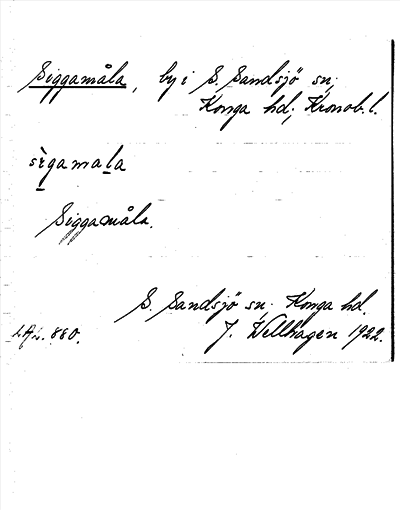 Siggamåla, by i S. Sandsjö sn;
Konga hd; Kronob. l.
sìgamala
Siggamåla.
S. Sandsjö sn. Konga hd.
880. J. Wellhagen 1922.